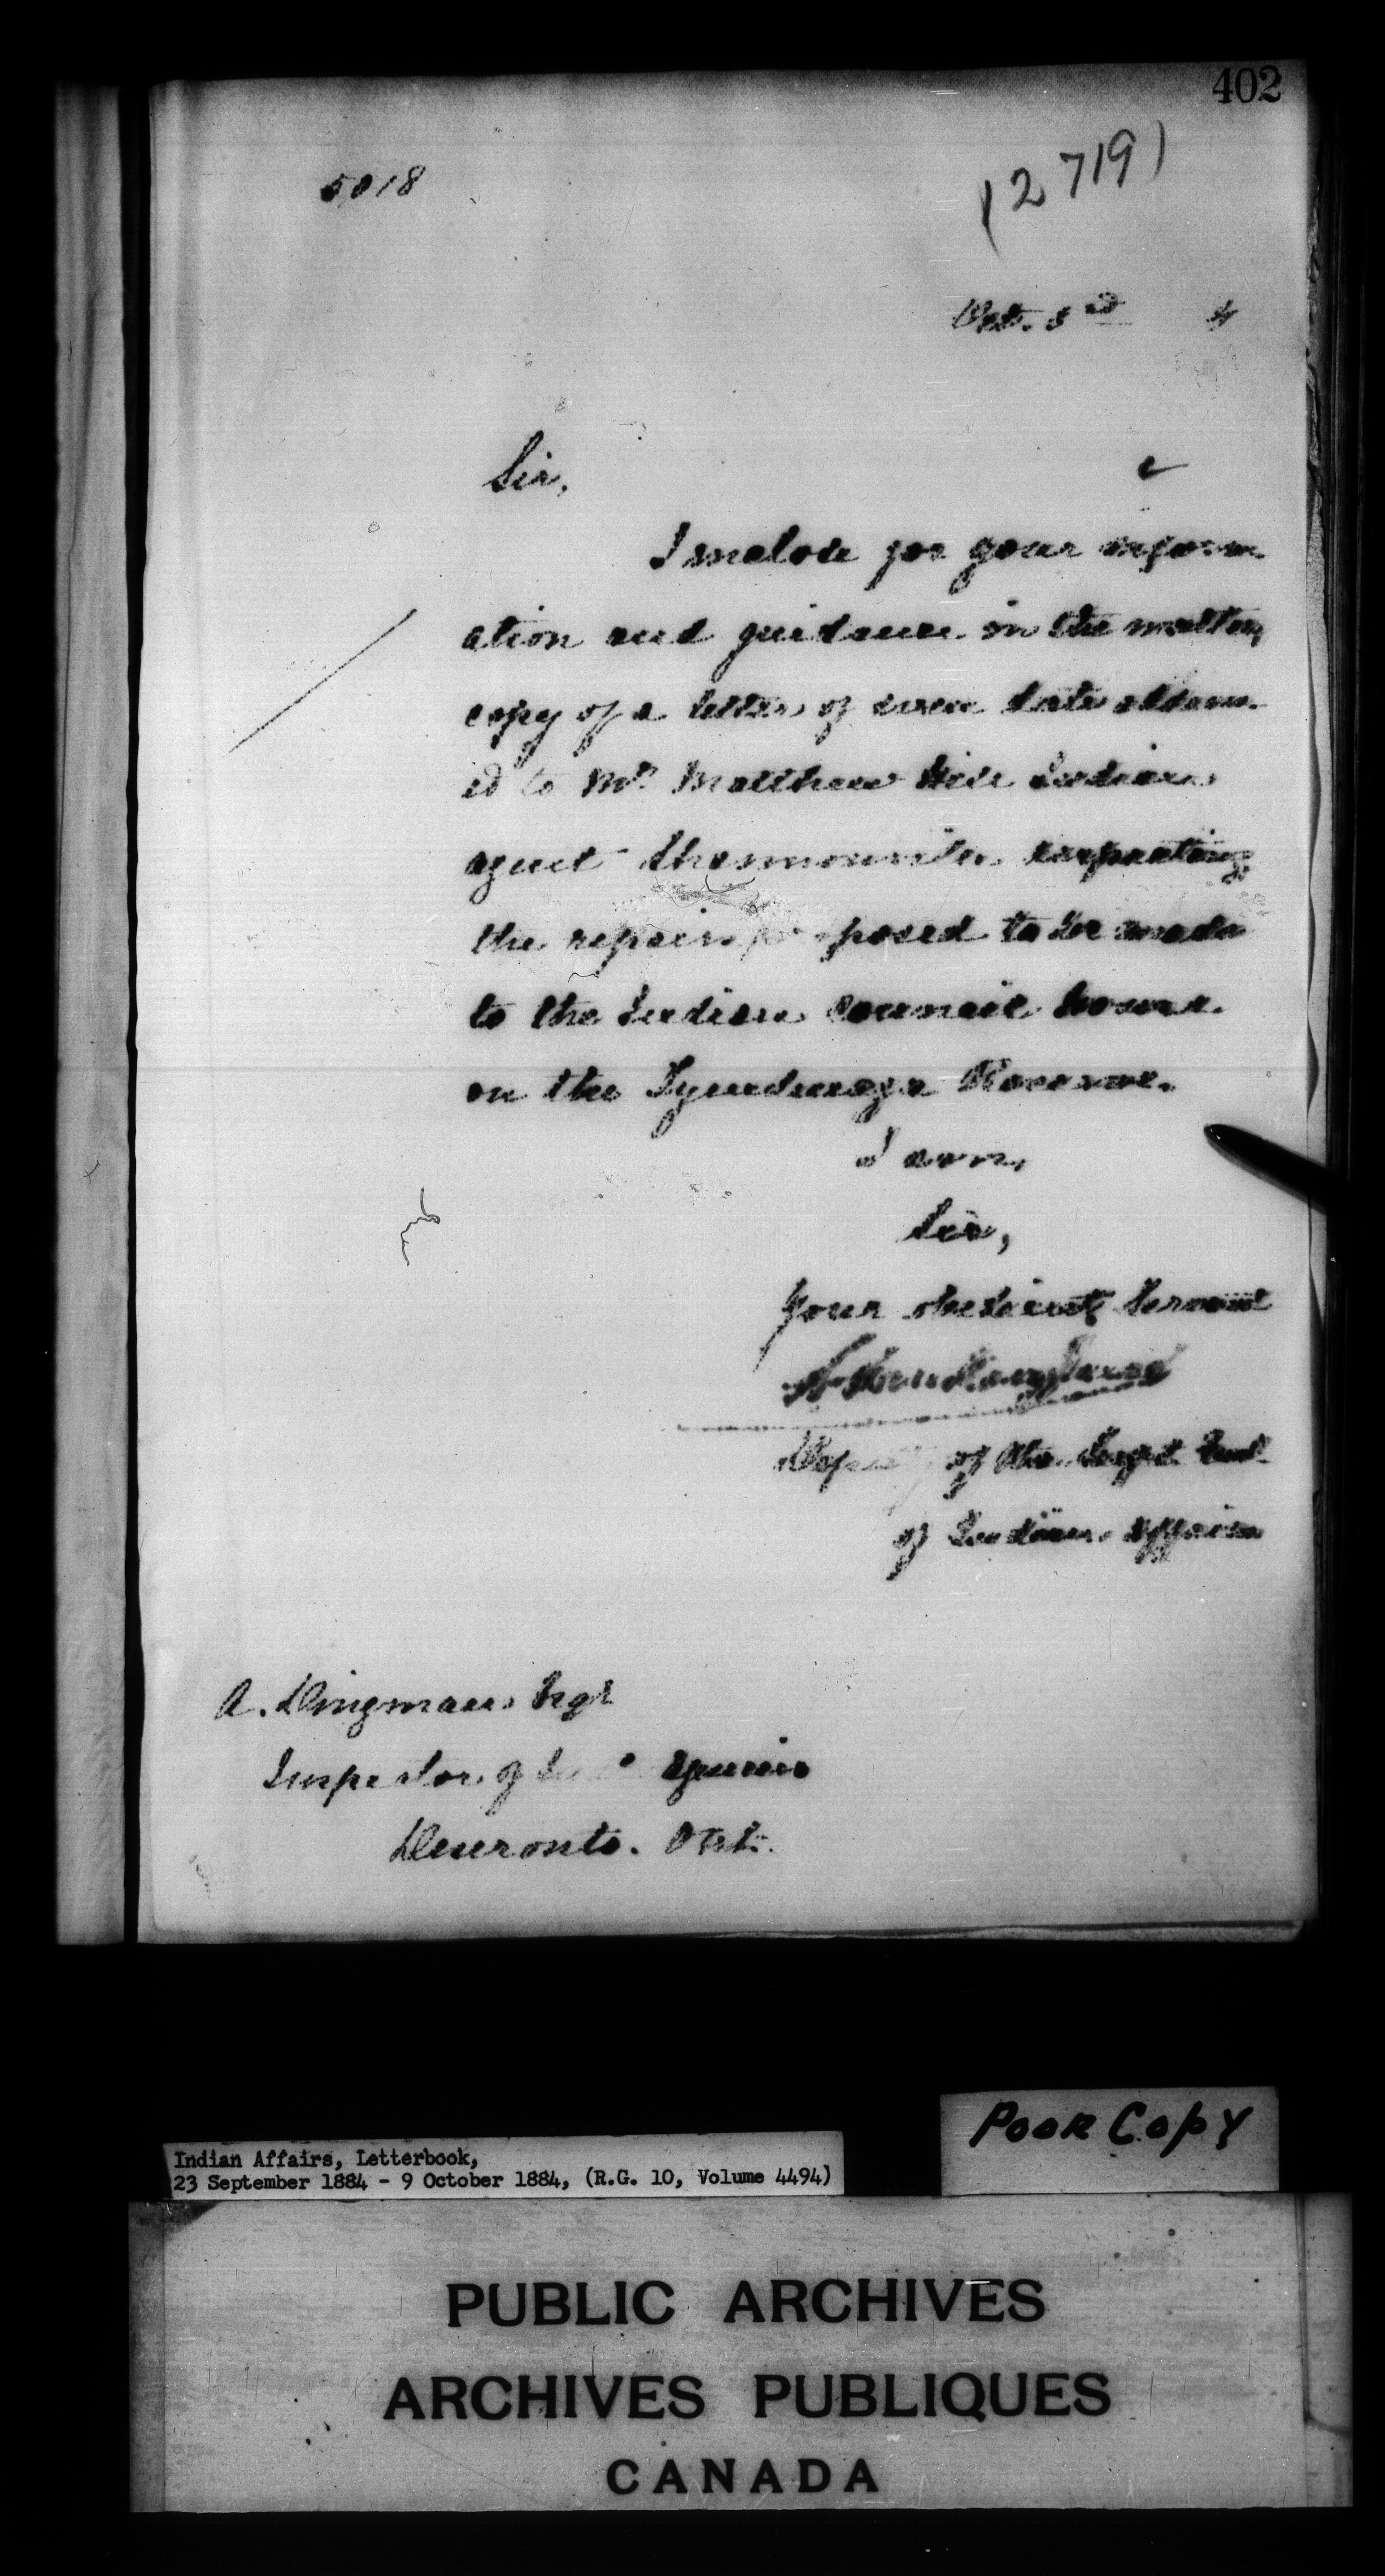 402
5018
(2719)
Oct. 3rd 4
Sir,
I enclose for your inform
ation and guidance in the matter,
copy of a letter of even date address-
ed to Mr. Matthew Hill Indian
agent Shannonville respecting
the repairs proposed to be made
to the Indian Council house
on the Tyendinaga Reserve.
I am,
Sir,
Your obedient Servant
L. VanKoughnet
Deputy of the Supt. Genl.
of Indian Affairs
A. Dingman Esqr
Inspector of Agencies
Deseronto. Ont.
Poor Copy
Indian Affairs, Letterbook,
23 September 1884 - 9 October 1884, (R.G. 10, Volume 4494)
PUBLIC ARCHIVES
ARCHIVES PUBLIQUES
CANADA